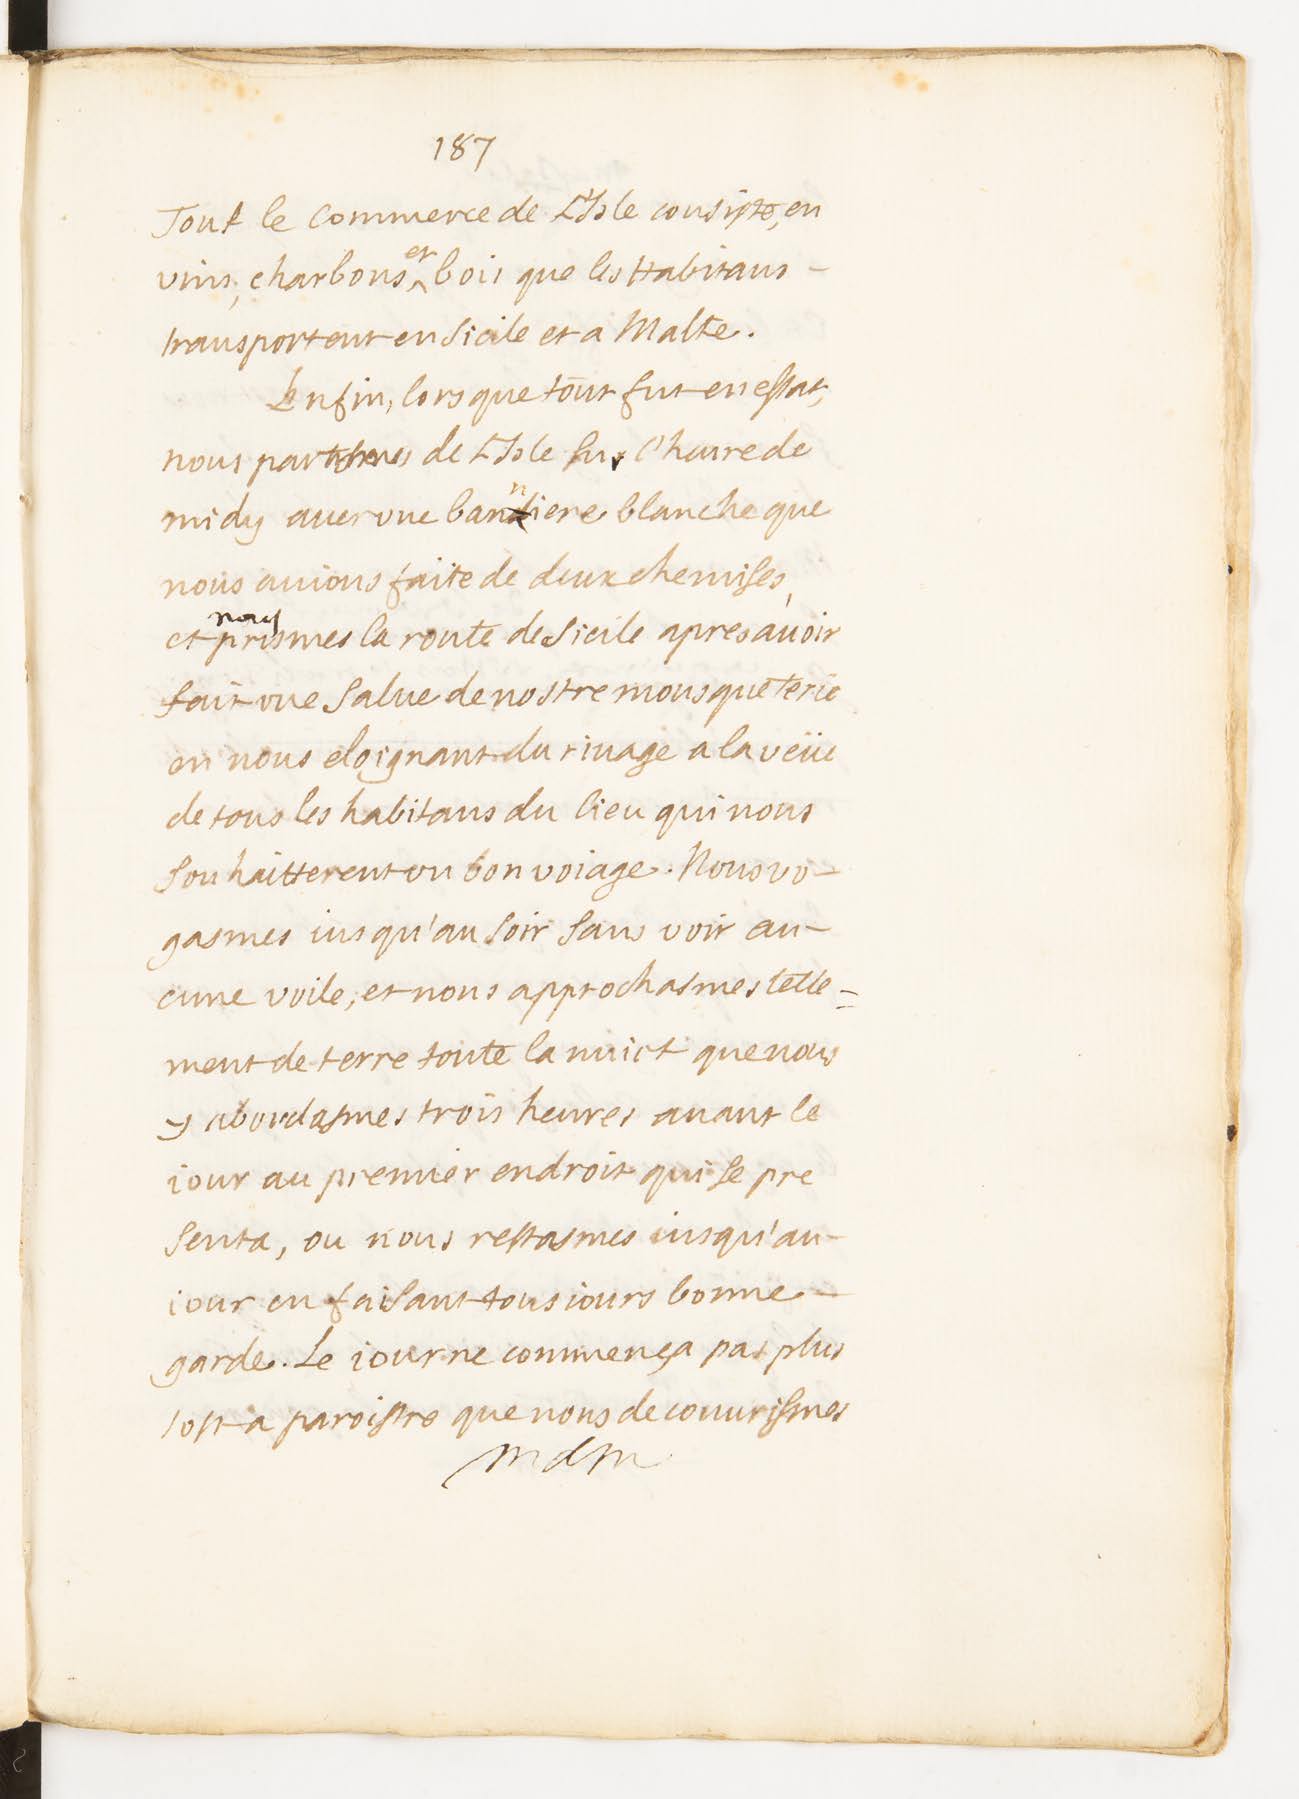 187
Tout le Commerce de L'Isle consiste, en
vins, charbons, et bois que les Habitans -
transportent en Sicile et a Malte.
Enfin, lors que tout fut en estat,
nous partismes de L'Isle sur l'heure de
midy avec vne banniere blanche que
nous auions faite de deux chemises,
et nous prismes la route de Sicile apres auoir
fait vne Salue de nostre mousqueterie
en nous eloignant du riuage a la veüe
de tous les habitans du lieu qui nous
souhaitterent vn bon voiage. Nous vo-
gasmes iusqu'au soir sans voir au-
cune voile, et nous approchasmes telle=
ment de terre toute la nuict que nous
y abordasmes trois heures auant le
iour au premier endroit qui se pre
senta, ou nous restasmes iusqu'au-
iour en faisant tousiours bonne -
garde. Le iour ne commença pas plus
tost a paroistre que nous decouurismes